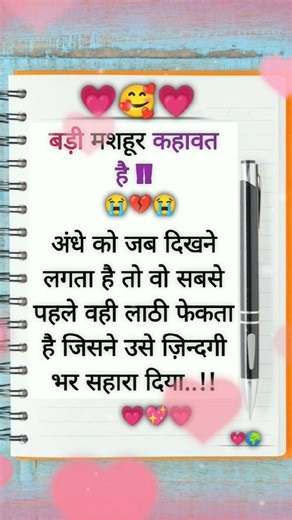 💗🥰💗
बड़ी मशहूर कहावत
है ‼
😭💔😭
अंधे को जब दिखने
लगता है तो वो सबसे
पहले वही लाठी फेकता
है जिसने उसे ज़िन्दगी
भर सहारा दिया..!!
💗💖💗
💗🌍